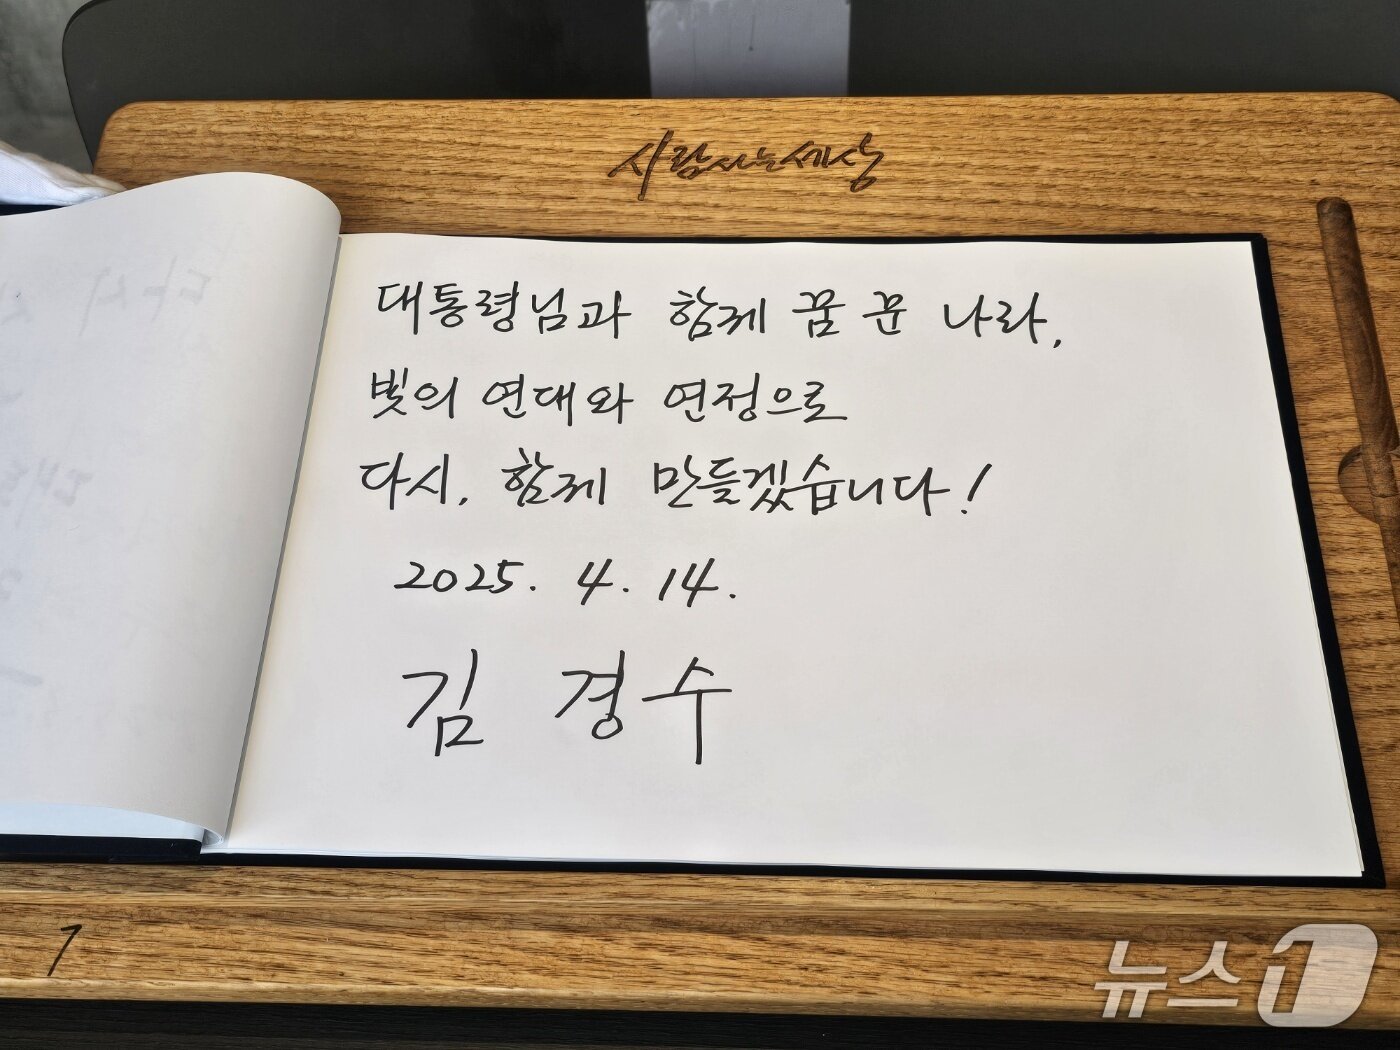 사람사는세상
대통령님과 함께 꿈 꾼 나라,
빛의 연대와 연정으로
다시, 함께 만들겠습니다!
2025. 4. 14.
김 경수
뉴스1